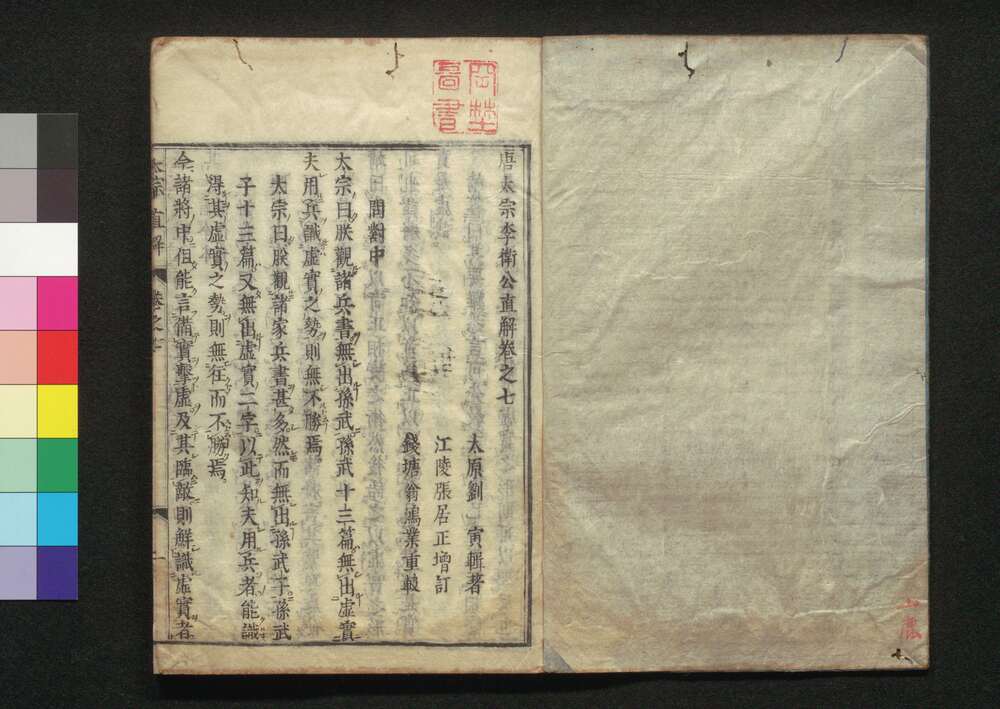 岡埜
啚書
唐太宗李衛公直解卷之七
太原劉　寅輯著
江陵張居正增訂
錢塘翁鴻業重較
問對中
太宗曰朕觀諸兵書無出孫武孫武十三篇無出虛實
夫用兵識虛實之勢則無不勝焉
太宗曰朕觀諸家兵書甚多然而無出孫武子孫武
子十三篇又無出虛實二字以此知夫用兵者能識
得其虛實之勢則無往而不勝焉
今諸將中但能言備實擊虛及其臨敵則鮮識虛實者
太宗　直解　卷之七　一